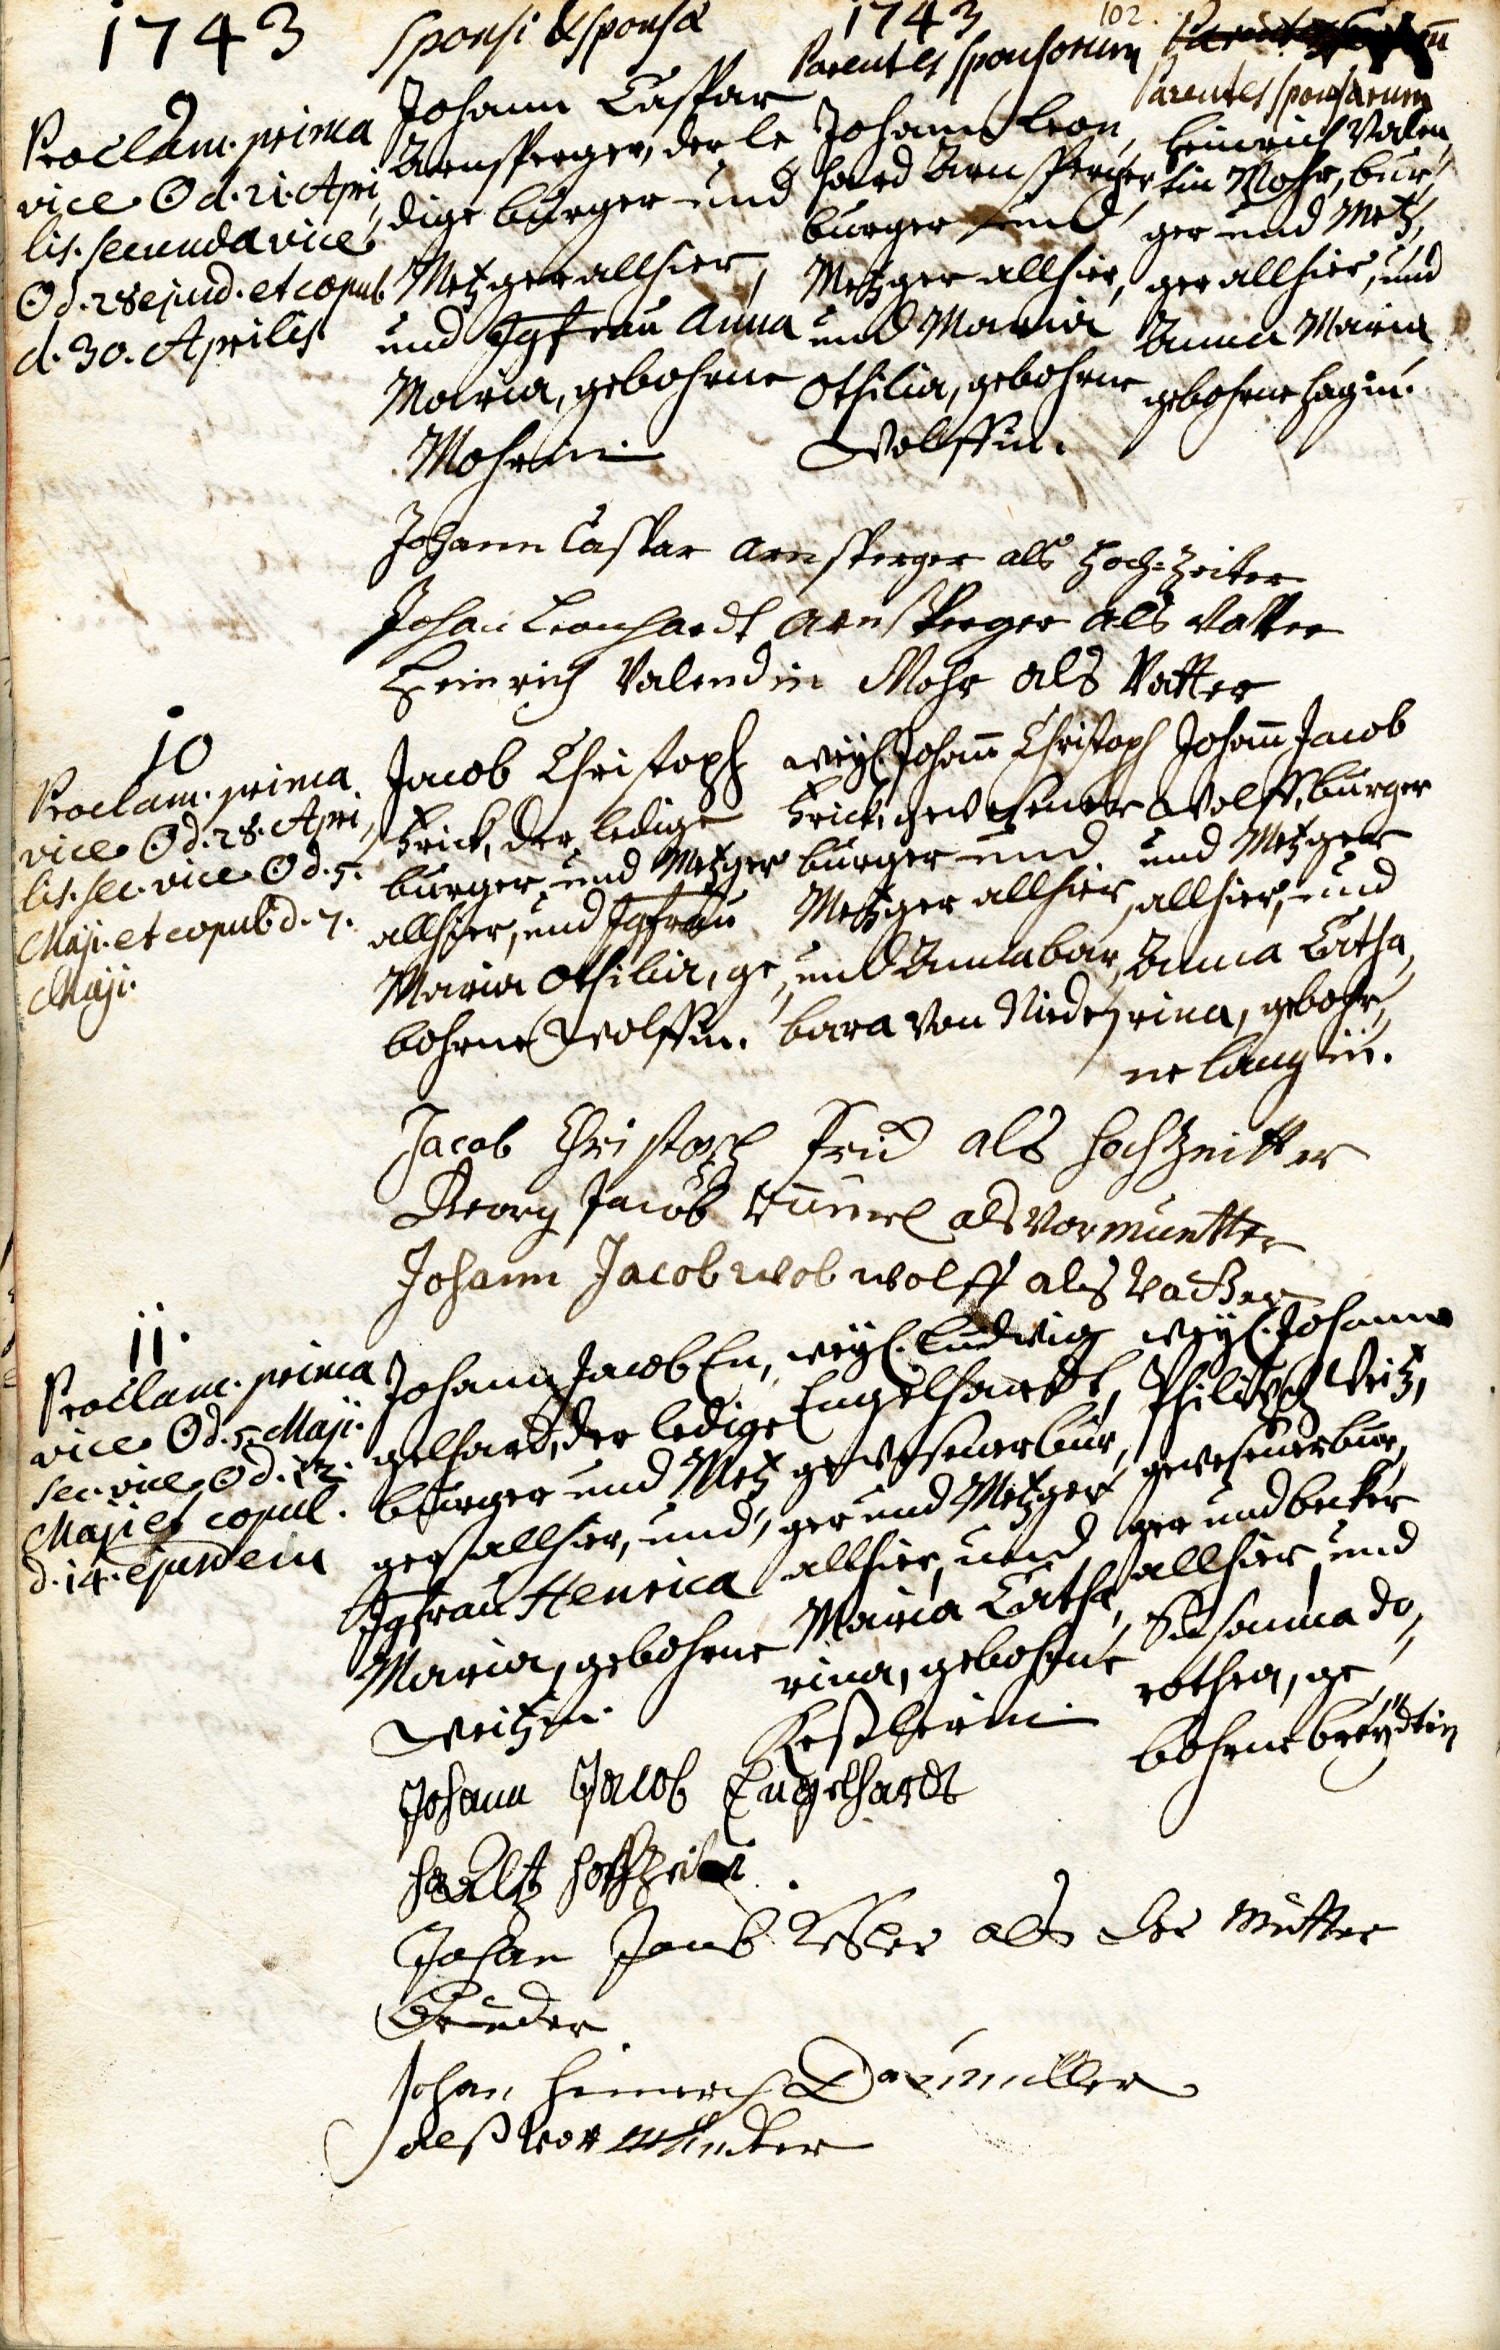 1743
Sponsi & Sponsæ
1743
102.
Parentes Sponsorum
Parentes Sponsarum
9
Proclam. prima
vice ☉ d. 21. Apri,
lis. secunda vice
☉ d. 28 ejusd. et copul.
d. 30. Aprilis
Johann Caspar
Arnsperger, der le
dige burger und
Metzger allhier,
und Jgfrau Anna
Maria, gebohrne
Mohrin.
Johann Leon,
hard Arnsperger,
burger und
Metzger allhier,
und Maria
Othilia, gebohrne
Wolffin.
Heinrich Valen,
tin Mohr, bur,
ger und Metz,
ger allhier, und
Anna Maria
gebohrne Hagin.
Johann Caspar Arnsperger als Hoch=Zeiter
Johan Leonhardt Arnsperger als Vatter
Heinrich Valendin Mohr als Vatter
10
Proclam. prima
vice ☉ d. 28. Apri,
lis. sec. vice ☉ d. 5.
Maji. et copul. d. 7.
Maji.
Jacob Christoph
Frick, der ledige
burger und Metzger
allhier, und Jgfrau
Maria Othilia, ge,
bohrne Wolffin.
weyl. Johann Christoph
Frick, gewesener
burger und
Metzger allhier,
und Anna bar,
bara von Nieder
Johann Jacob
Wolff, burger
und Metzger
allhier, und
Anna Catha,
rina, gebohr,
ne Langin.
Jacob Christoph Frick als Hochzeitter
Georg Jacob als Vormuntter
Johann Jacob wob wolff als Vatter
11.
Proclam. prima
vice ☉ d. 5. Maji.
sec. vice ☉ d. 12.
Maji et copul.
d. 14. ejusdem
Johann Jacob En,
gelhard, der ledige
burger und Metz
ger allhier, und
Jgfrau Henrica
Maria, gebohrne
Weitzin.
weyl. Ludwig
Engelhardt,
gewesener bur,
ger und Metzger
allhier, und
Maria Catha,
rina, gebohrne
Keßlerin.
weyl. Johann
Philipp Weitz,
gewesener bur,
ger und becker
allhier und
Susanna Do,
rothea, ge,
bohrne breydtin
Johann Jacob Engelhardt
Hochzeiter
Johan Jacob Kesler als der Mutter
Bruder
Johan Heinrich Daumiller
alß Vormünder